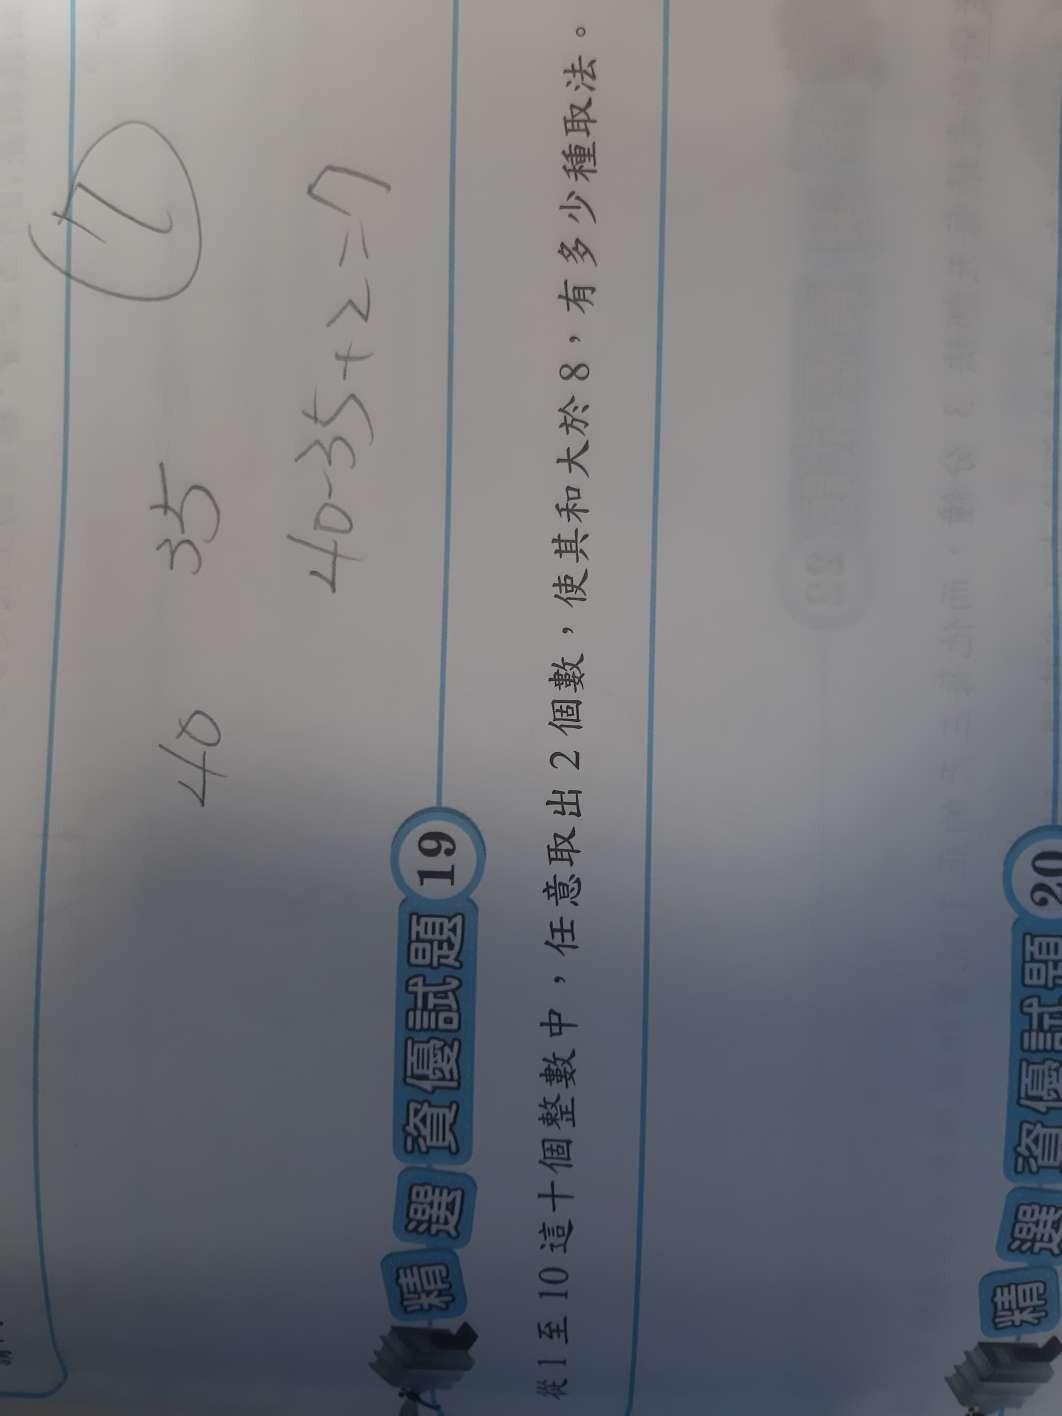 17
40 35
40-35+2=7
精選資優試題 19
從1至10這十個整數中，任意取出2個數，使其和大於8，有多少種取法。
精選資優試題 20